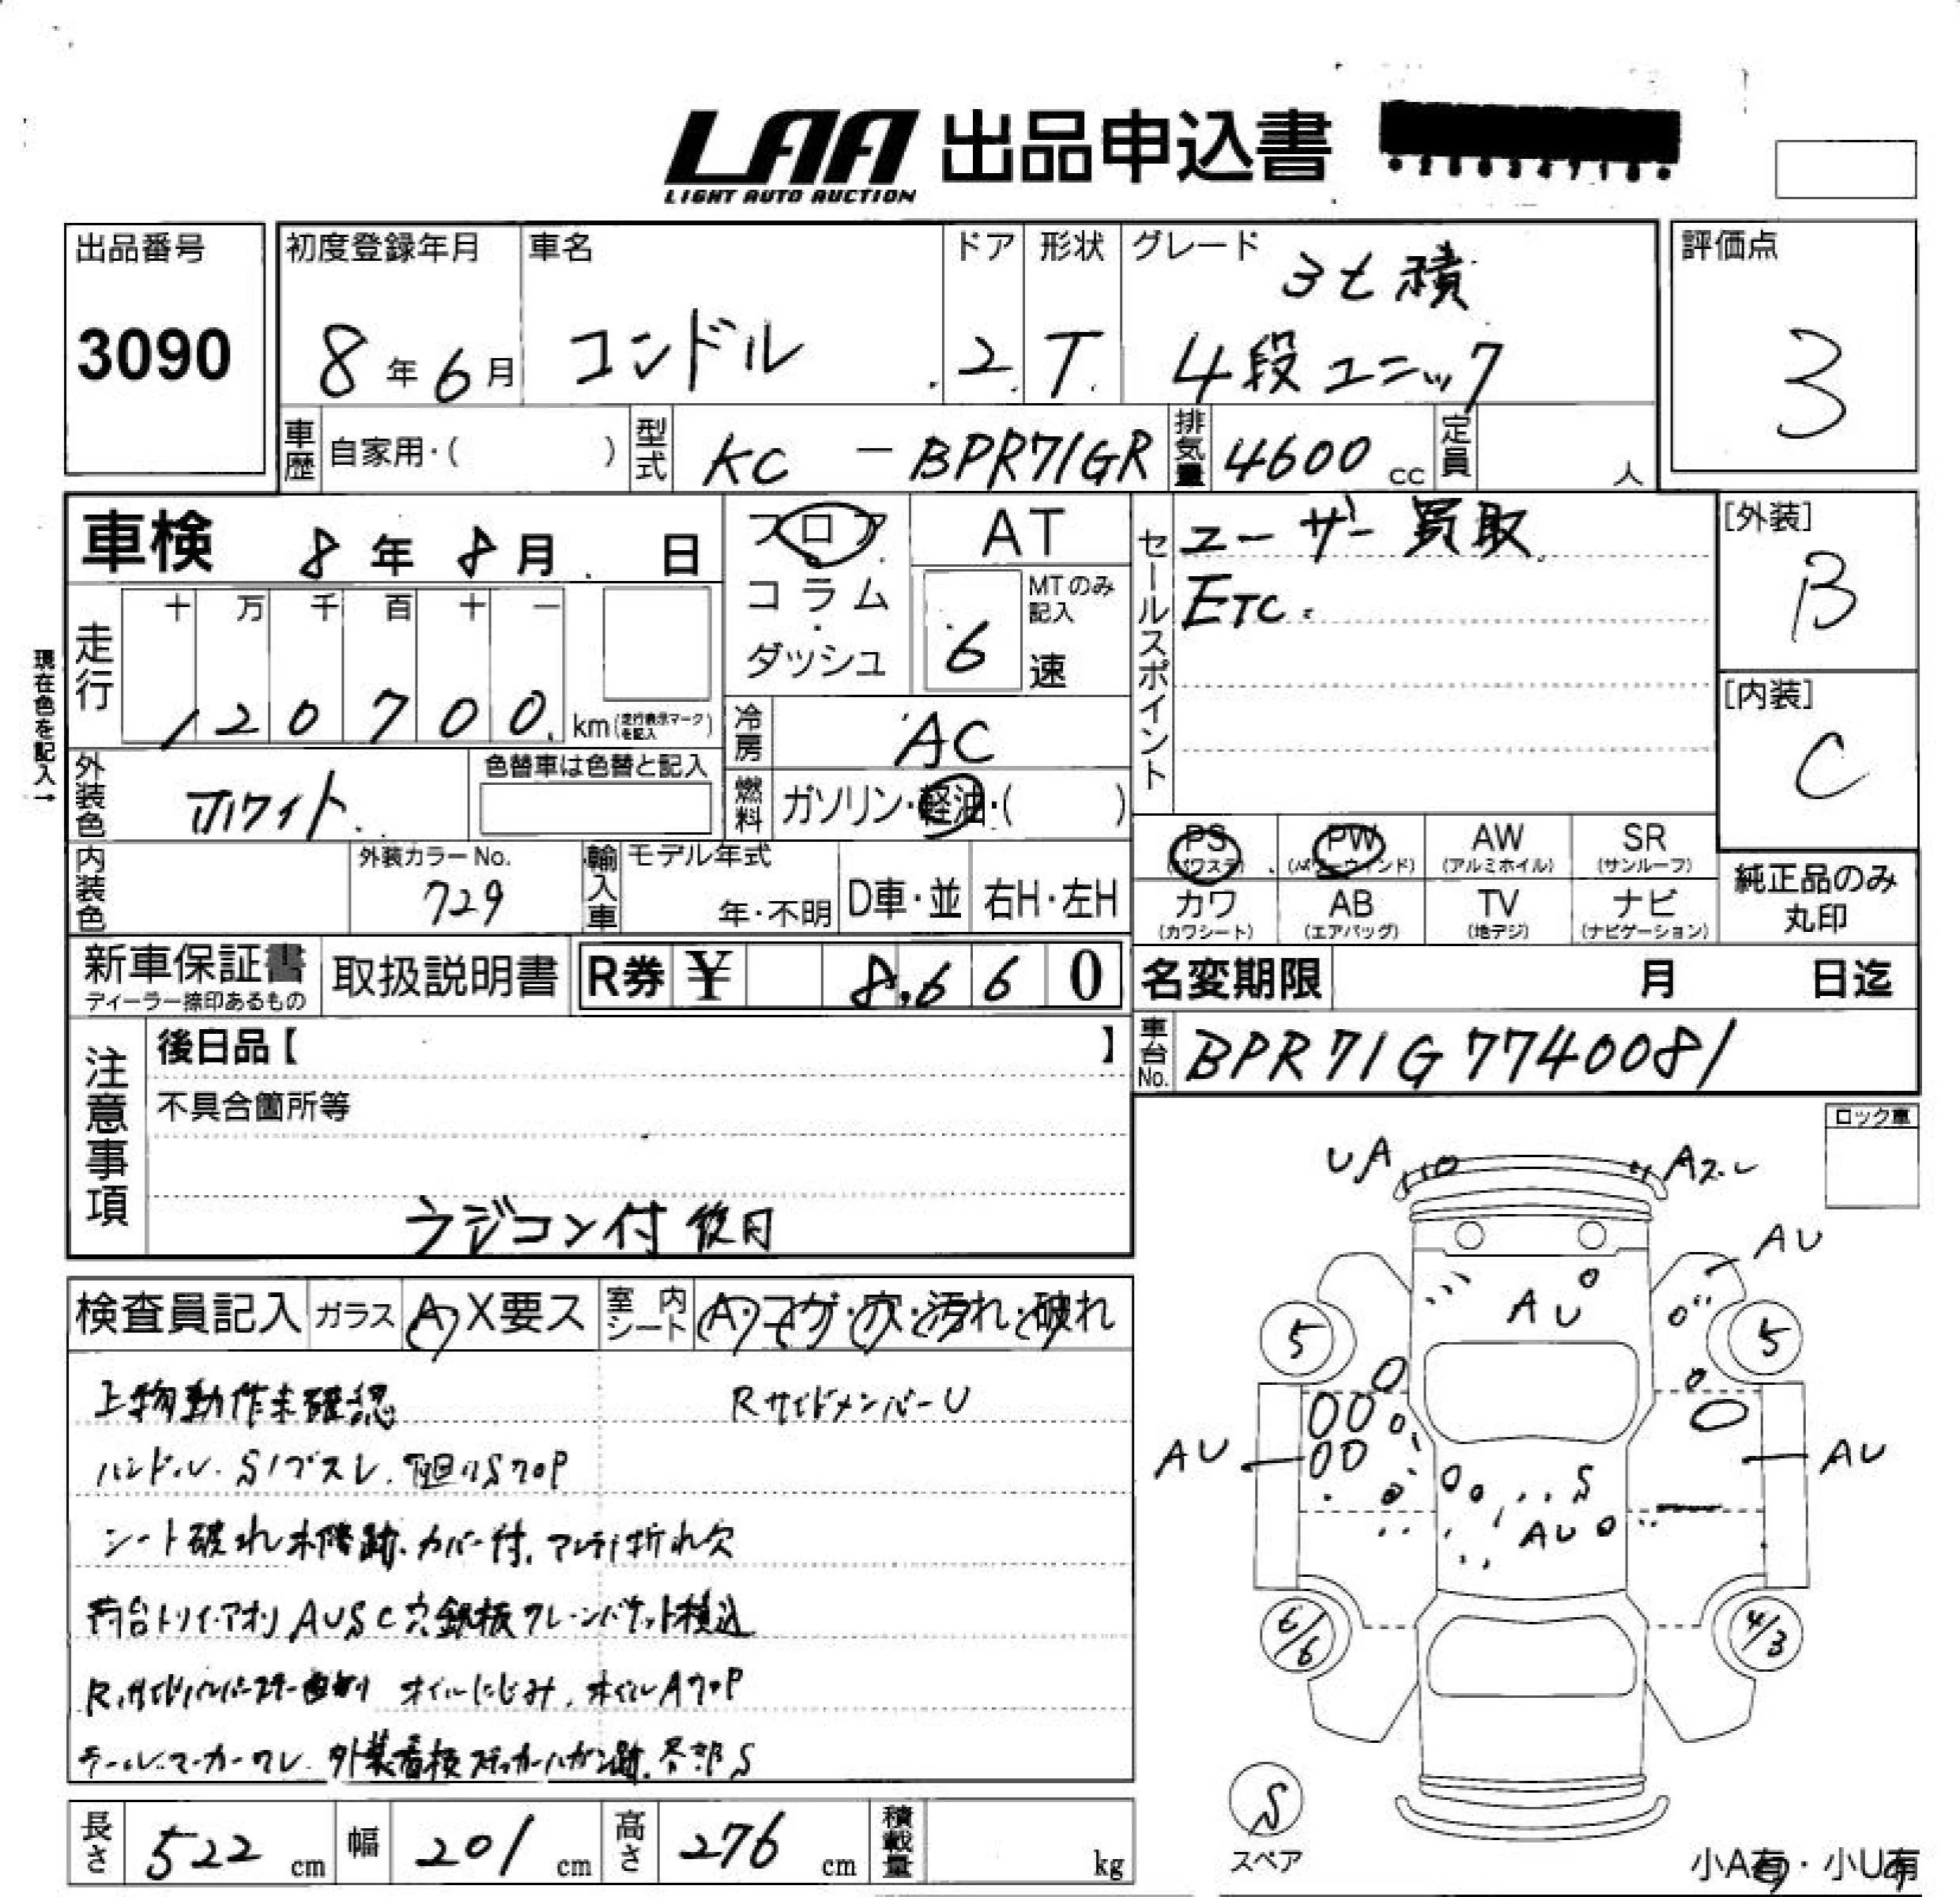 LAA 出品申込書
LIGHT AUTO AUCTION
出品番号
3090
初度登録年月
8年6月
車名
コンドル
ドア
2
形状
T
グレード
3t積
4段ユニック
評価点
3
車歴 自家用・( )
型式 KC - BPR71GR
排気量 4600 cc
定員 人
車検 8年8月 日
フロア
コラム
・
ダッシュ
AT
MTのみ記入
6 速
セールスポイント
ユーザー買取
ETC.
[外装]
B
[内装]
C
現在色を記入→
走行
十 万 千 百 十 一
120700 km (走行表示マークを記入)
冷房 AC
外装色 ホワイト
色替車は色替と記入
燃料 ガソリン・軽油・( )
PS (パワステ)
PW (パワーウィンド)
AW (アルミホイル)
SR (サンルーフ)
カワ (カワシート)
AB (エアバッグ)
TV (地デジ)
ナビ (ナビゲーション)
純正品のみ
丸印
内装色
外装カラーNo.
729
輸入車
モデル年式
年・不明
D車・並
右H・左H
新車保証書
ディーラー捺印あるもの
取扱説明書
R券 ¥ 8,660
名変期限 月 日迄
車台No. BPR71G7740081
注意事項
後日品【 】
不具合箇所等
ラジコン付 後日
ロック車
検査員記入
ガラス A・X要ス
室内シート A・コゲ・穴・汚れ・破れ
上物動作未確認
RサイドメンバーU
ハンドル.Sノブスレ.
シート破れ補修跡.カバー付.アンテナ折れ欠
荷台トリイ.アオリAUSC穴鉄板クレーンバケット積込
オイルにじみ.
テールマーカーワレ.外装看板ステッカーハガシ跡.各部S
UA
Aスレ
AU
AU
5
5
AU
AU
S
AU
6/6
4/3
S
スペア
小A有・小U有
長さ 522 cm
幅 201 cm
高さ 276 cm
積載量 kg